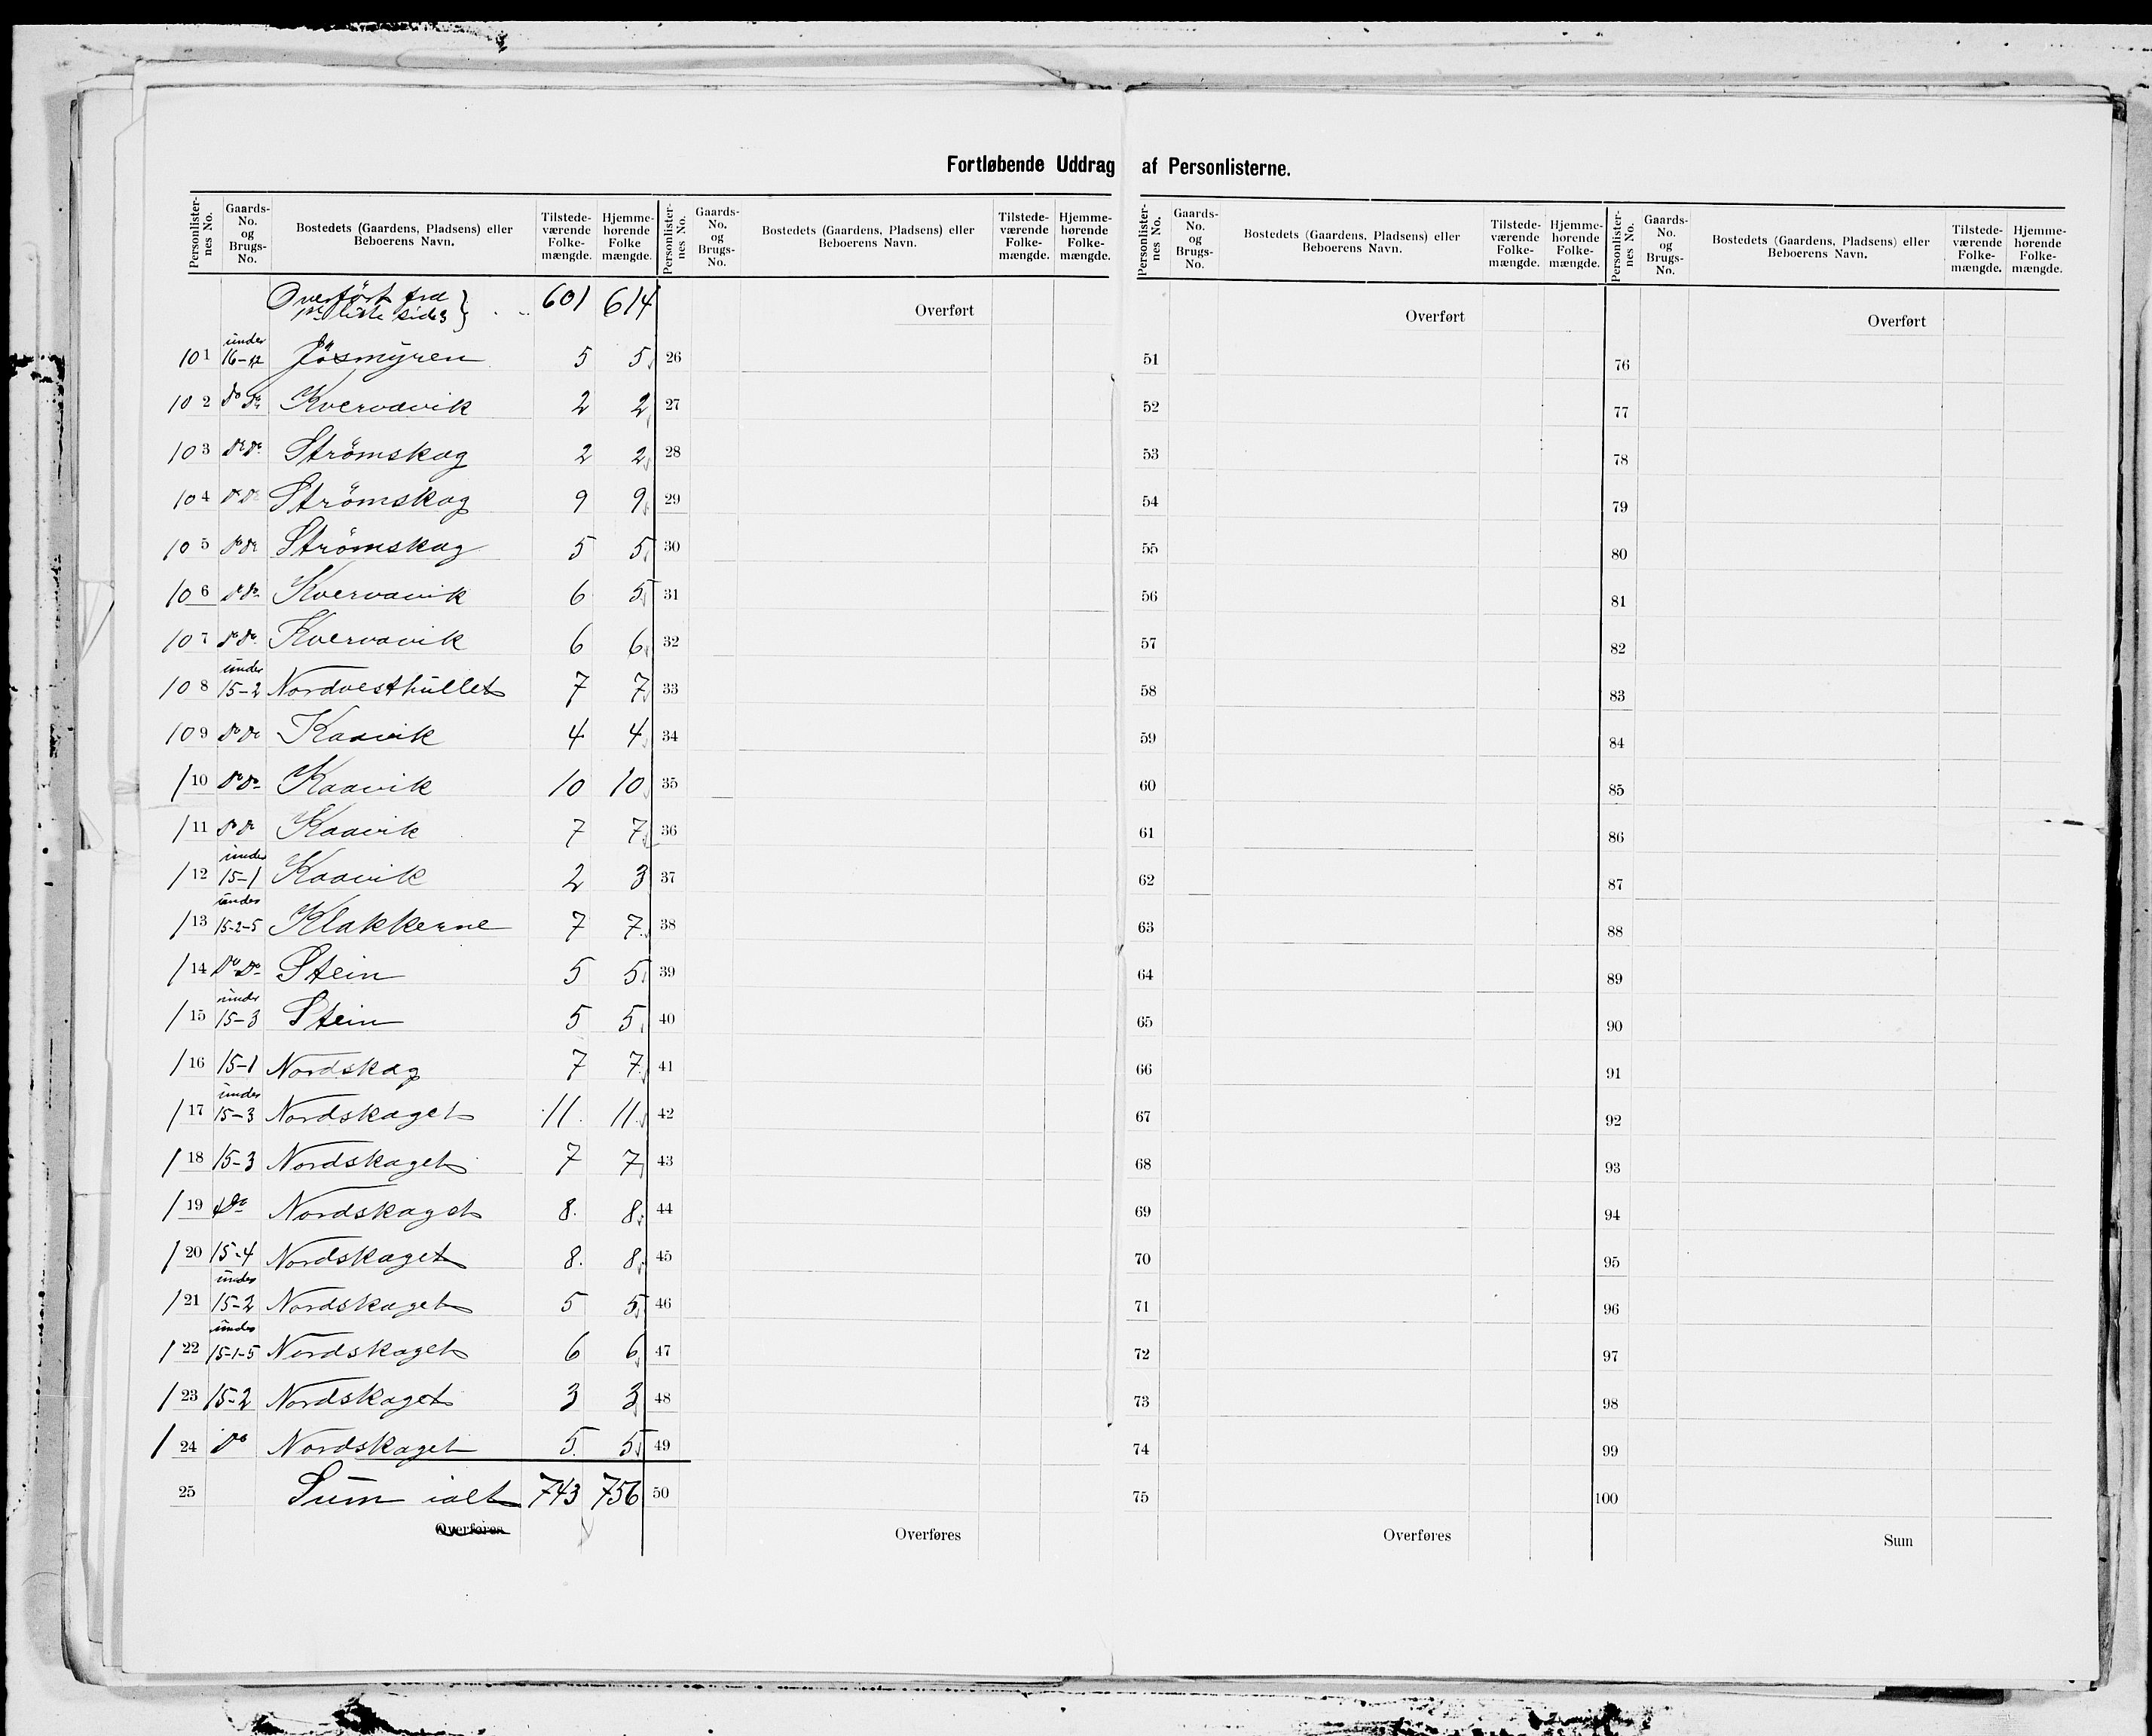 Fortløbende Uddrag af Personlisterne.
Personlisternes No. Gaards-No. og Brugs-No. Bostedets (Gaardens, Pladsens) eller Beboerens Navn. Tilstedeværende Folkemængde. Hjemmehørende Folkemængde.
Overført fra liste side 3 } . . . 601 614
101 under 16-12 Jøsmyren 5 5
102 do do Kvervavik 2 2
103 do do Strömskag 2 2
104 do do Strömskag 9 9
105 do do Strömskag 5 5
106 do do Kvervavik 6 5
107 do do Kvervavik 6 6
108 under 15-2 Nordvesthullet 7 7
109 do do Kaavik 4 4
110 do do Kaavik 10 10
111 do do Kaavik 7 7
112 under 15-1 Kaavik 2 3
113 under 15-2-5 Klakkerne 7 7
114 do do Stein 5 5
115 under 15-3 Stein 5 5
116 15-1 Nordskag 7 7
117 under 15-3 Nordskaget 11 11
118 15-3 Nordskaget 7 7
119 do Nordskaget 8 8
120 15-4 Nordskaget 8 8
121 under 15-2 Nordskaget 5 5
122 under 15-1-5 Nordskaget 6 6
123 15-2 Nordskaget 3 3
124 do Nordskaget 5 5
25 Sum ialt 743 756
Overføres
Personlisternes No. Gaards-No. og Brugs-No. Bostedets (Gaardens, Pladsens) eller Beboerens Navn. Tilstedeværende Folkemængde. Hjemmehørende Folkemængde.
Overført
26
27
28
29
30
31
32
33
34
35
36
37
38
39
40
41
42
43
44
45
46
47
48
49
50
Overføres
Personlisternes No. Gaards-No. og Brugs-No. Bostedets (Gaardens, Pladsens) eller Beboerens Navn. Tilstedeværende Folkemængde. Hjemmehørende Folkemængde.
Overført
51
52
53
54
55
56
57
58
59
60
61
62
63
64
65
66
67
68
69
70
71
72
73
74
75
Overføres
Personlisternes No. Gaards-No. og Brugs-No. Bostedets (Gaardens, Pladsens) eller Beboerens Navn. Tilstedeværende Folkemængde. Hjemmehørende Folkemængde.
Overført
76
77
78
79
80
81
82
83
84
85
86
87
88
89
90
91
92
93
94
95
96
97
98
99
100
Sum